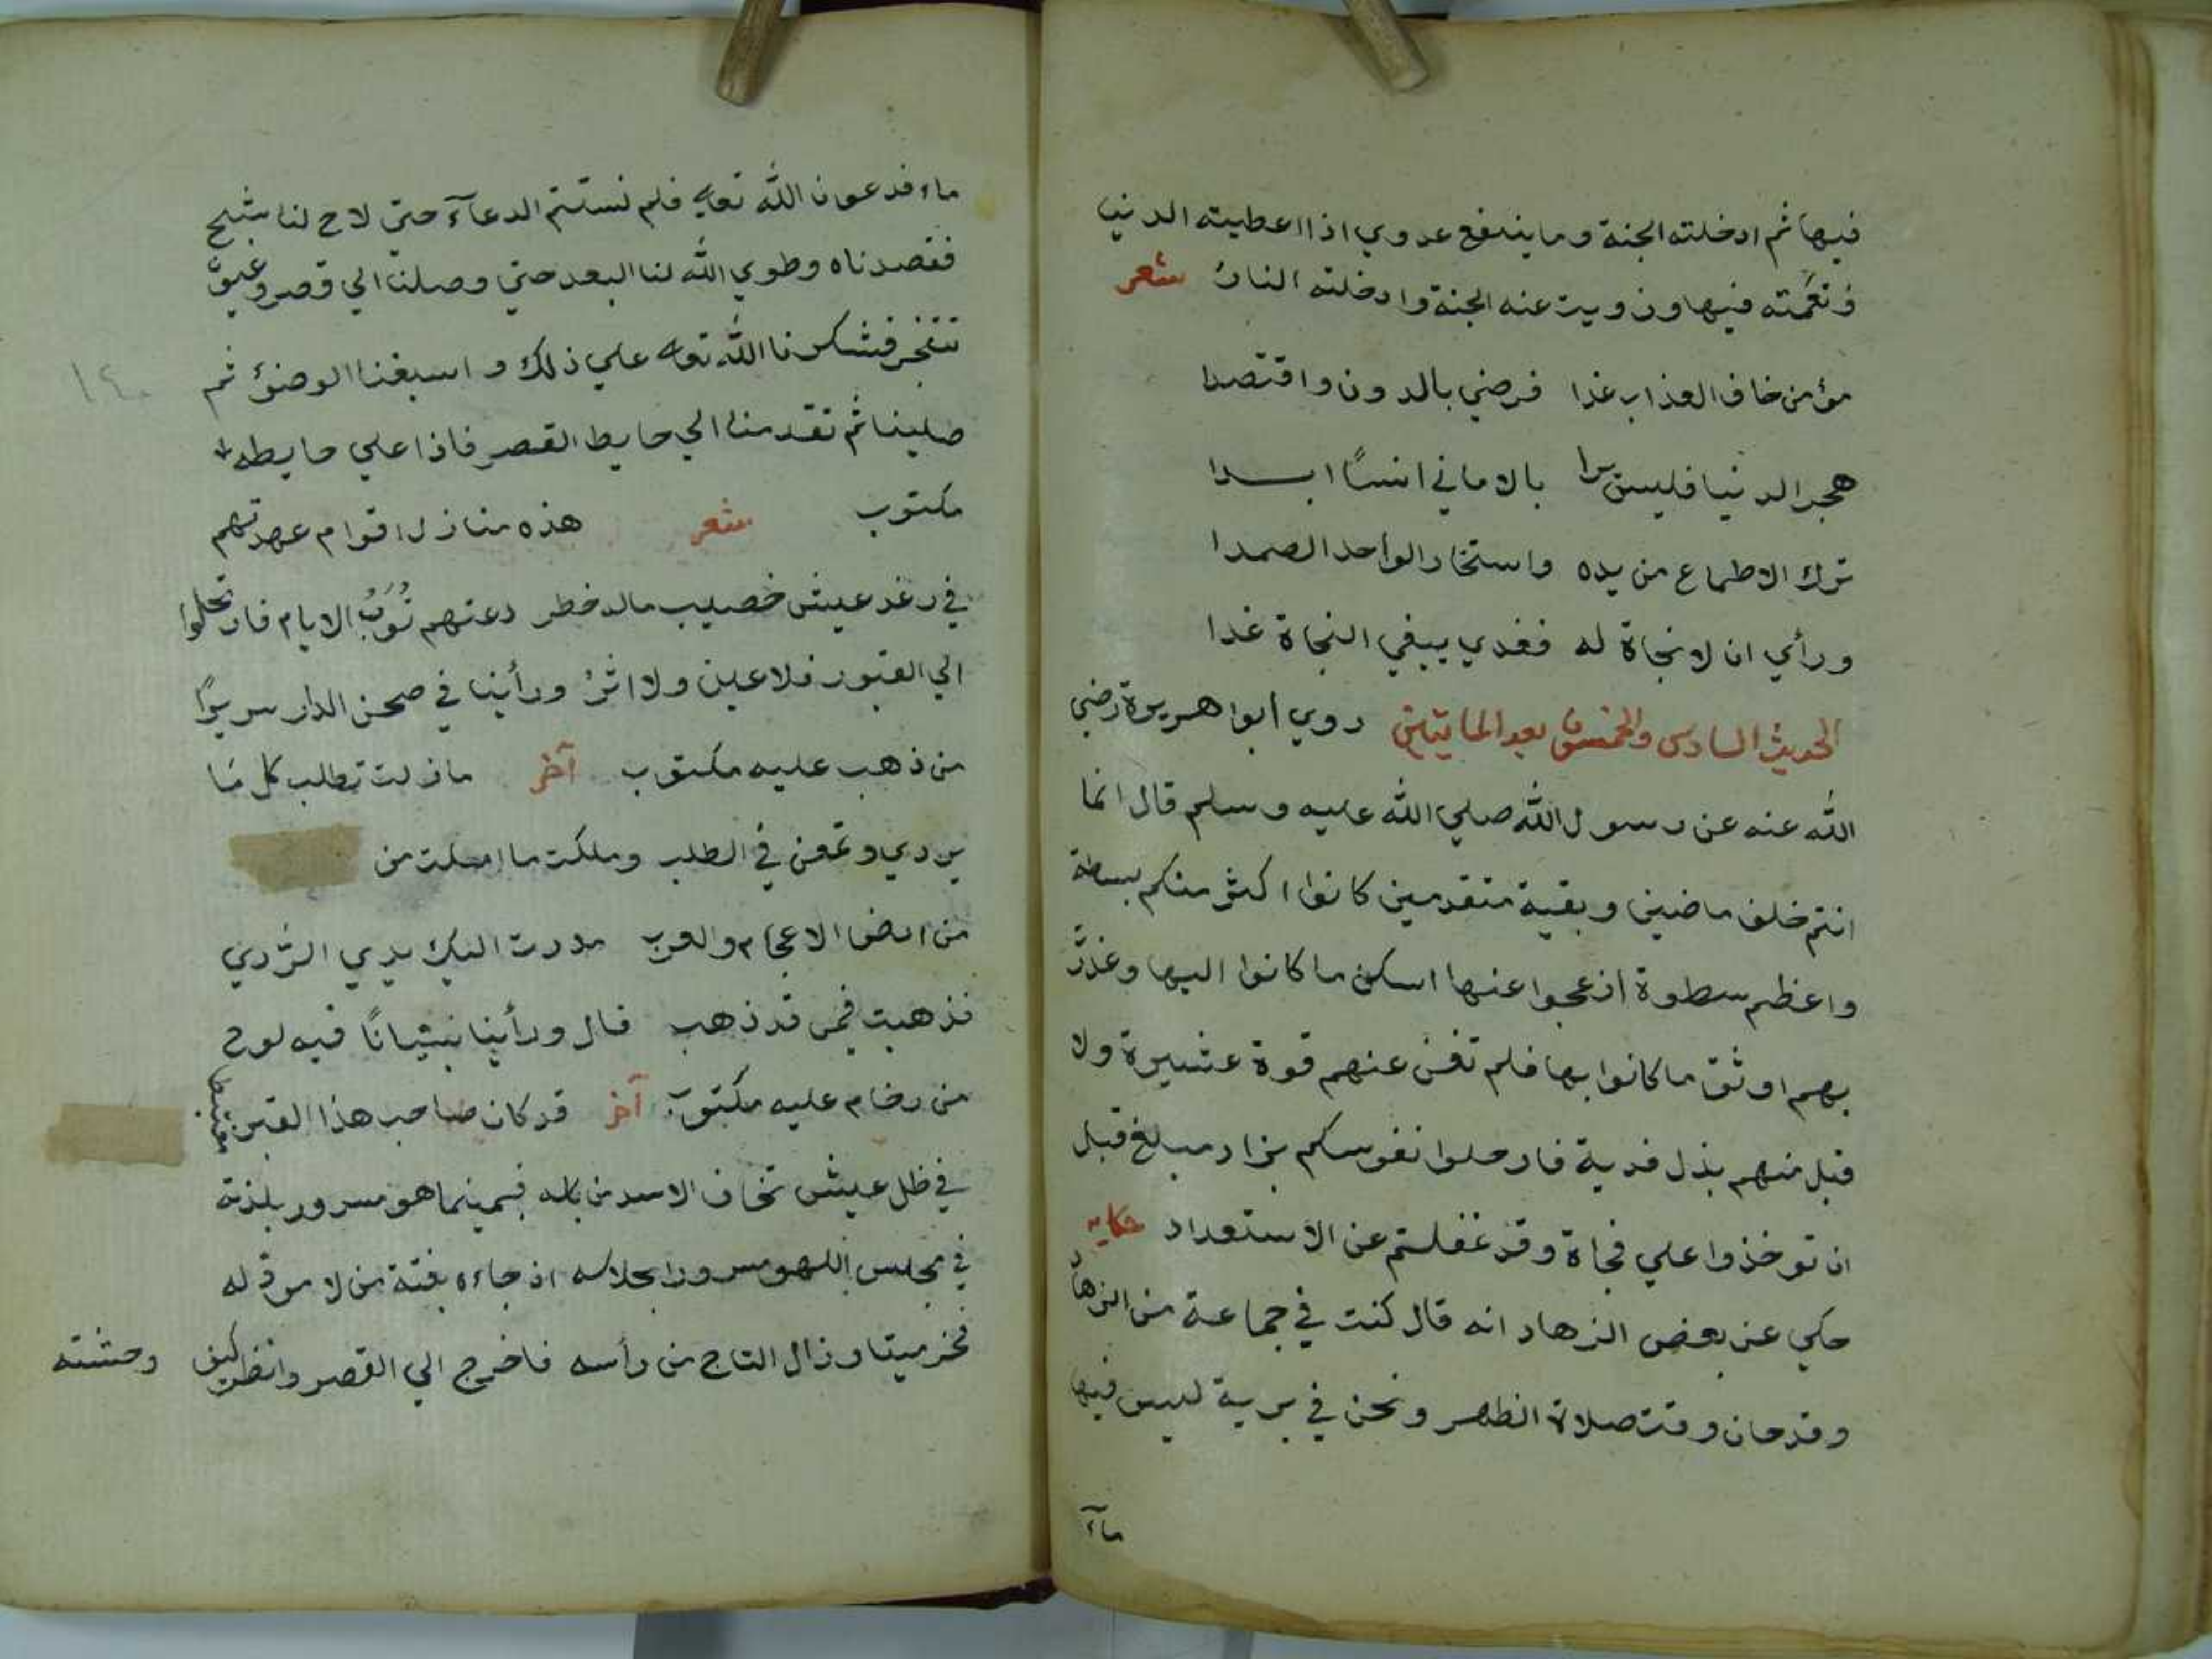 فيها ثم ادخلته الجنة وما ينفع عدوي اذا اعطيته الدنيا
ونعمته فيها وزويت عنه الجنة وادخلته النار شعر
مؤمن خاف العذاب غدا فرضي بالدون واقتصدا
هجر الدنيا فليس يرا بالاماني انسًا ابدا
ترك الاطماع من يده واستخار الواحد الصمدا
ورأي ان لا نجاة له فغدي يبغي النجاة غدا
الحديث السادس والخمسون بعد المايتين روي ابوا هريرة رضي
الله عنه عن رسول الله صلي الله عليه وسلم قال انما
انتم خلف ماضين وبقية متقدمين كانوا اكثر منكم بسطة
واعظم سطوة ازعجوا عنها اسكن ما كانوا اليها وغدرت
بهم اوثق ما كانوا بها فلم تغن عنهم قوة عشيرة ولا
قبل منهم بذل فدية فارحلوا نفوسكم بزاد مبلغ قبل
ان توخذوا علي فجاة وقد غفلتم عن الاستعداد حكايه
حكي عن بعض الزهاد انه قال كنت في جماعة من الزهاد
وقد حان وقت صلاة الظهر ونحن في برية ليس فيها
ماء
ماء فدعونا الله تعالي فلم نستتم الدعآء حتي لاح لنا شبح
فقصدناه وطوي الله لنا البعد حتي وصلنا الي قصر وعيون
تتفجر فشكرنا الله تعالي علي ذلك واسبغنا الوضوء ثم
صلينا ثم تقدمنا الي حايط القصر فاذا علي حايطه
مكتوب شعر هذه منازل اقوام عهدتهم
في رغد عيش خصيب ماله خطر دعتهم نُوَبُ الايام فارتحلوا
الي القبور فلا عين ولا اثرُ ورأينا في صحن الدار سريرًا
من ذهب عليه مكتوب آخر ما زلت تطلب كل ما
يردي وتمعن في الطلب وملكت ما املت من
من ارض الاعجام والعرب مدت اليك يدي الردي
فذهبت فيمن قد ذهب قال ورأينا بنيانًا فيه لوح
من رخام عليه مكتوب آخر قد كان صاحب هذا القبر مغتبطا
في ظل عيش تخاف الاسد من باسه فبينما هو مسرور بلذته
في مجلس اللهو مسرورا بجلاسه اذ جاءه بغتة من لا مرد له
فخر ميتا وزال التاج من رأسه فاخرج الي القصر وانظر كيف
وحشته
١٤٠